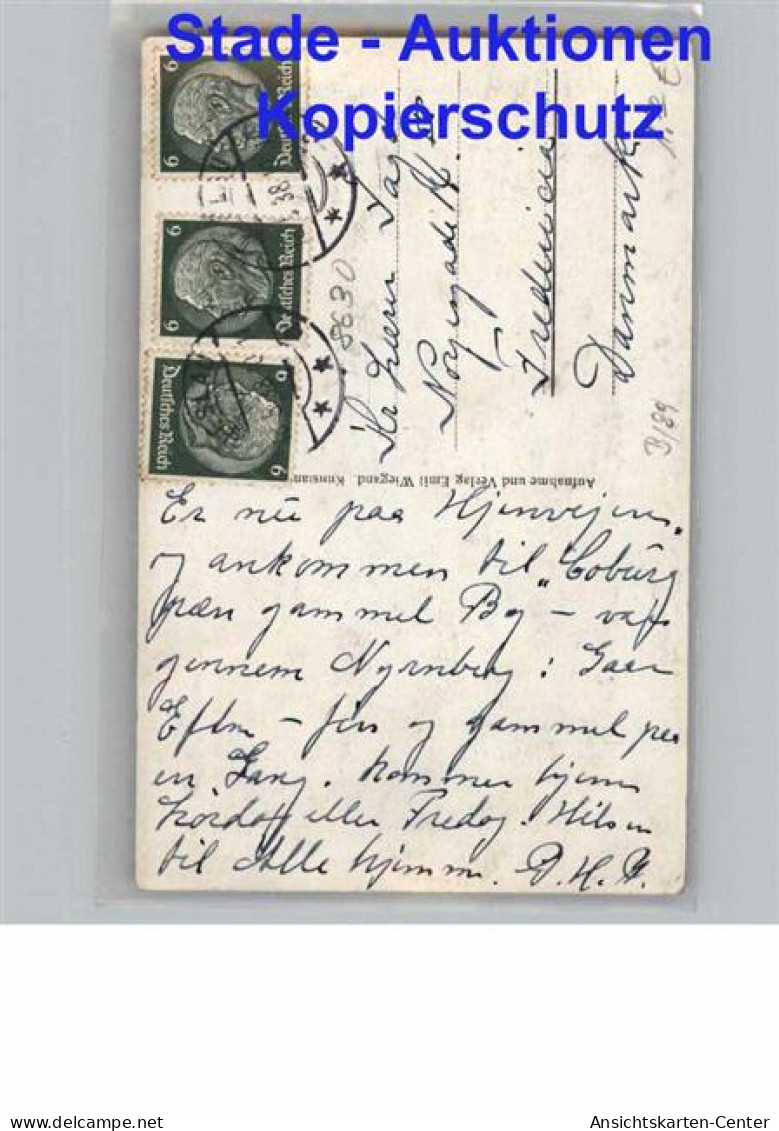 Stade - Auktionen
Kopierschutz
Deutsches Reich
6
6
Deutsches Reich
6
6
Deutsches Reich
6
6
38
8630
Hr
Fredericia
Danmark
B/89
Aufnahme und Verlag Emil Wiegand, Kunstan
Er nu paa Hjemvejen
og ankommen til "Coburg
pæn gammel By -
gennem Nyrnberg i Gaar
Eftm - fin og gammel paa
en Gang. Kommer hjem
Lørdag eller Fredag. Hilsen
til Alle hjemme. P.H.
delcampe.net
Ansichtskarten-Center